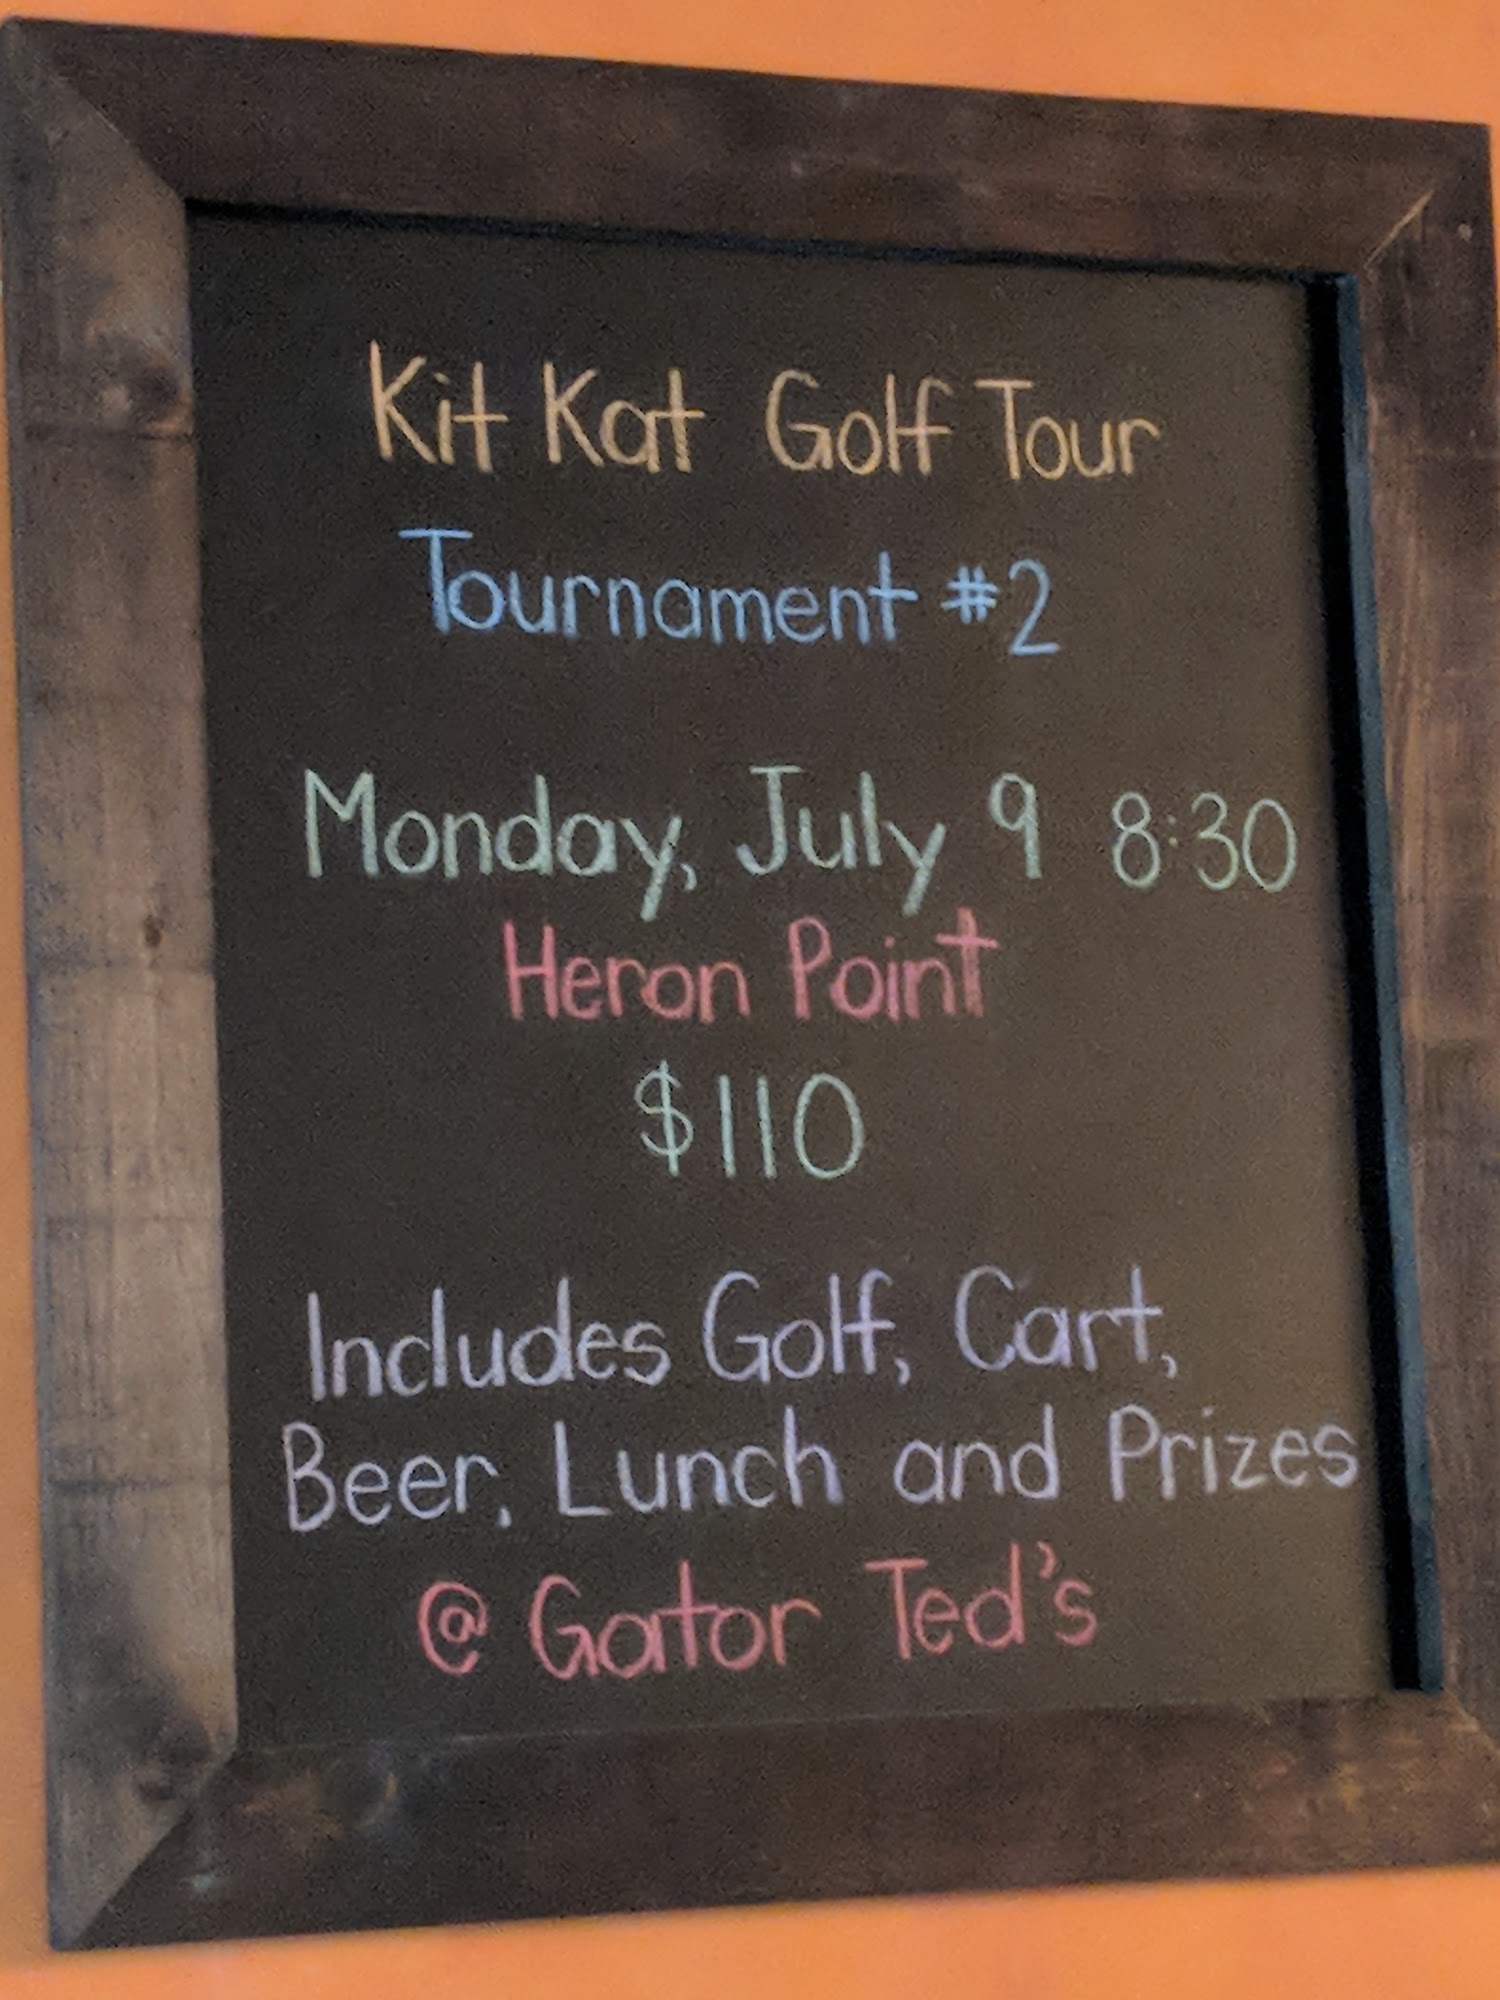 Kit Kat Golf Tour
Tournament #2
Monday, July 9 8:30
Heron Point
$110
Includes Golf, Cart,
Beer, Lunch and Prizes
@ Gator Ted's